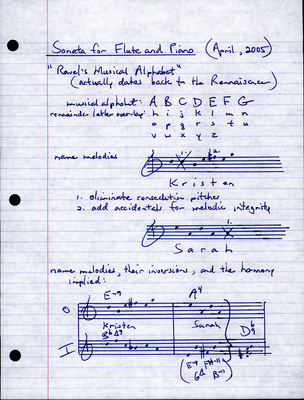 Sonata for Flute and Piano (April, 2005)
"Ravel's Musical Alphabet"
(actually dates back to the Rennaissance)
musical alphabet: A B C D E F G
remainder letter overlay: h i j k l m n
o p q r s t u
v w x y z
name melodies
1. 2.
Kristen
1. eliminate consecutive pitches
2. add accidentals for melodic integrity
1.
Sarah
name melodies, their inversions, and the harmony
implied:
E-9 A4
O
Kristen Sarah
I